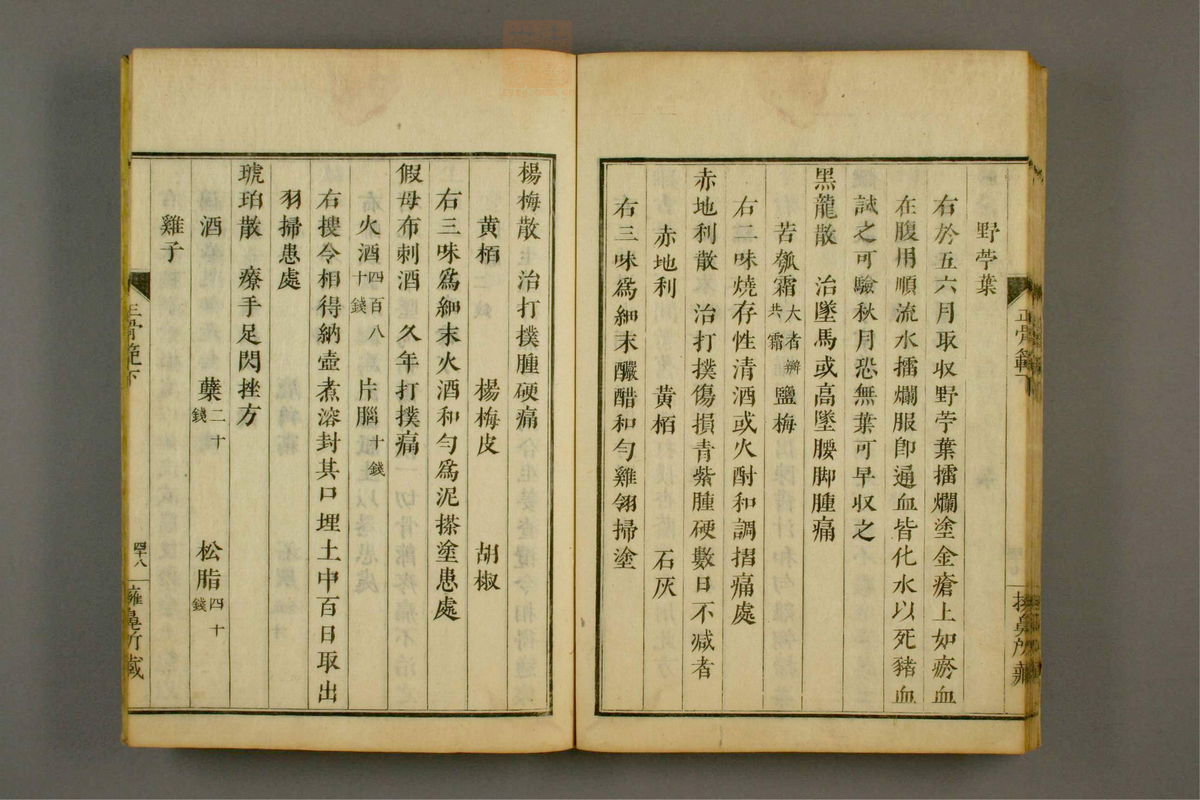 野苧葉
右於五六月取収野苧葉擂爛塗金瘡上如瘀血
在腹用順流水擂爛服卽通血皆化水以死豬血
試之可驗秋月恐無葉可早収之
黑龍散 治墜馬或高墜腰脚腫痛
苦瓠霜 鹽梅
右二味燒存性清酒或火酎和調摺痛處
赤地利散 治打撲傷損青紫腫硬數日不減者
赤地利 黄栢 石灰
右三味爲細末釅醋和勻雞翎掃塗
正骨範下
楊梅散 治打撲腫硬痛
黄栢 楊梅皮 胡椒
右三味爲細末火酒和勻爲泥搽塗患處
假母布刺酒 久年打撲痛
火酒四百八十錢 片腦十錢
右摟令相得納壺煮溶封其口埋土中百日取出
羽掃患處
琥珀散 療手足閃挫方
酒 蘖二十錢 松脂四十錢
雞子
正骨範下 四十八